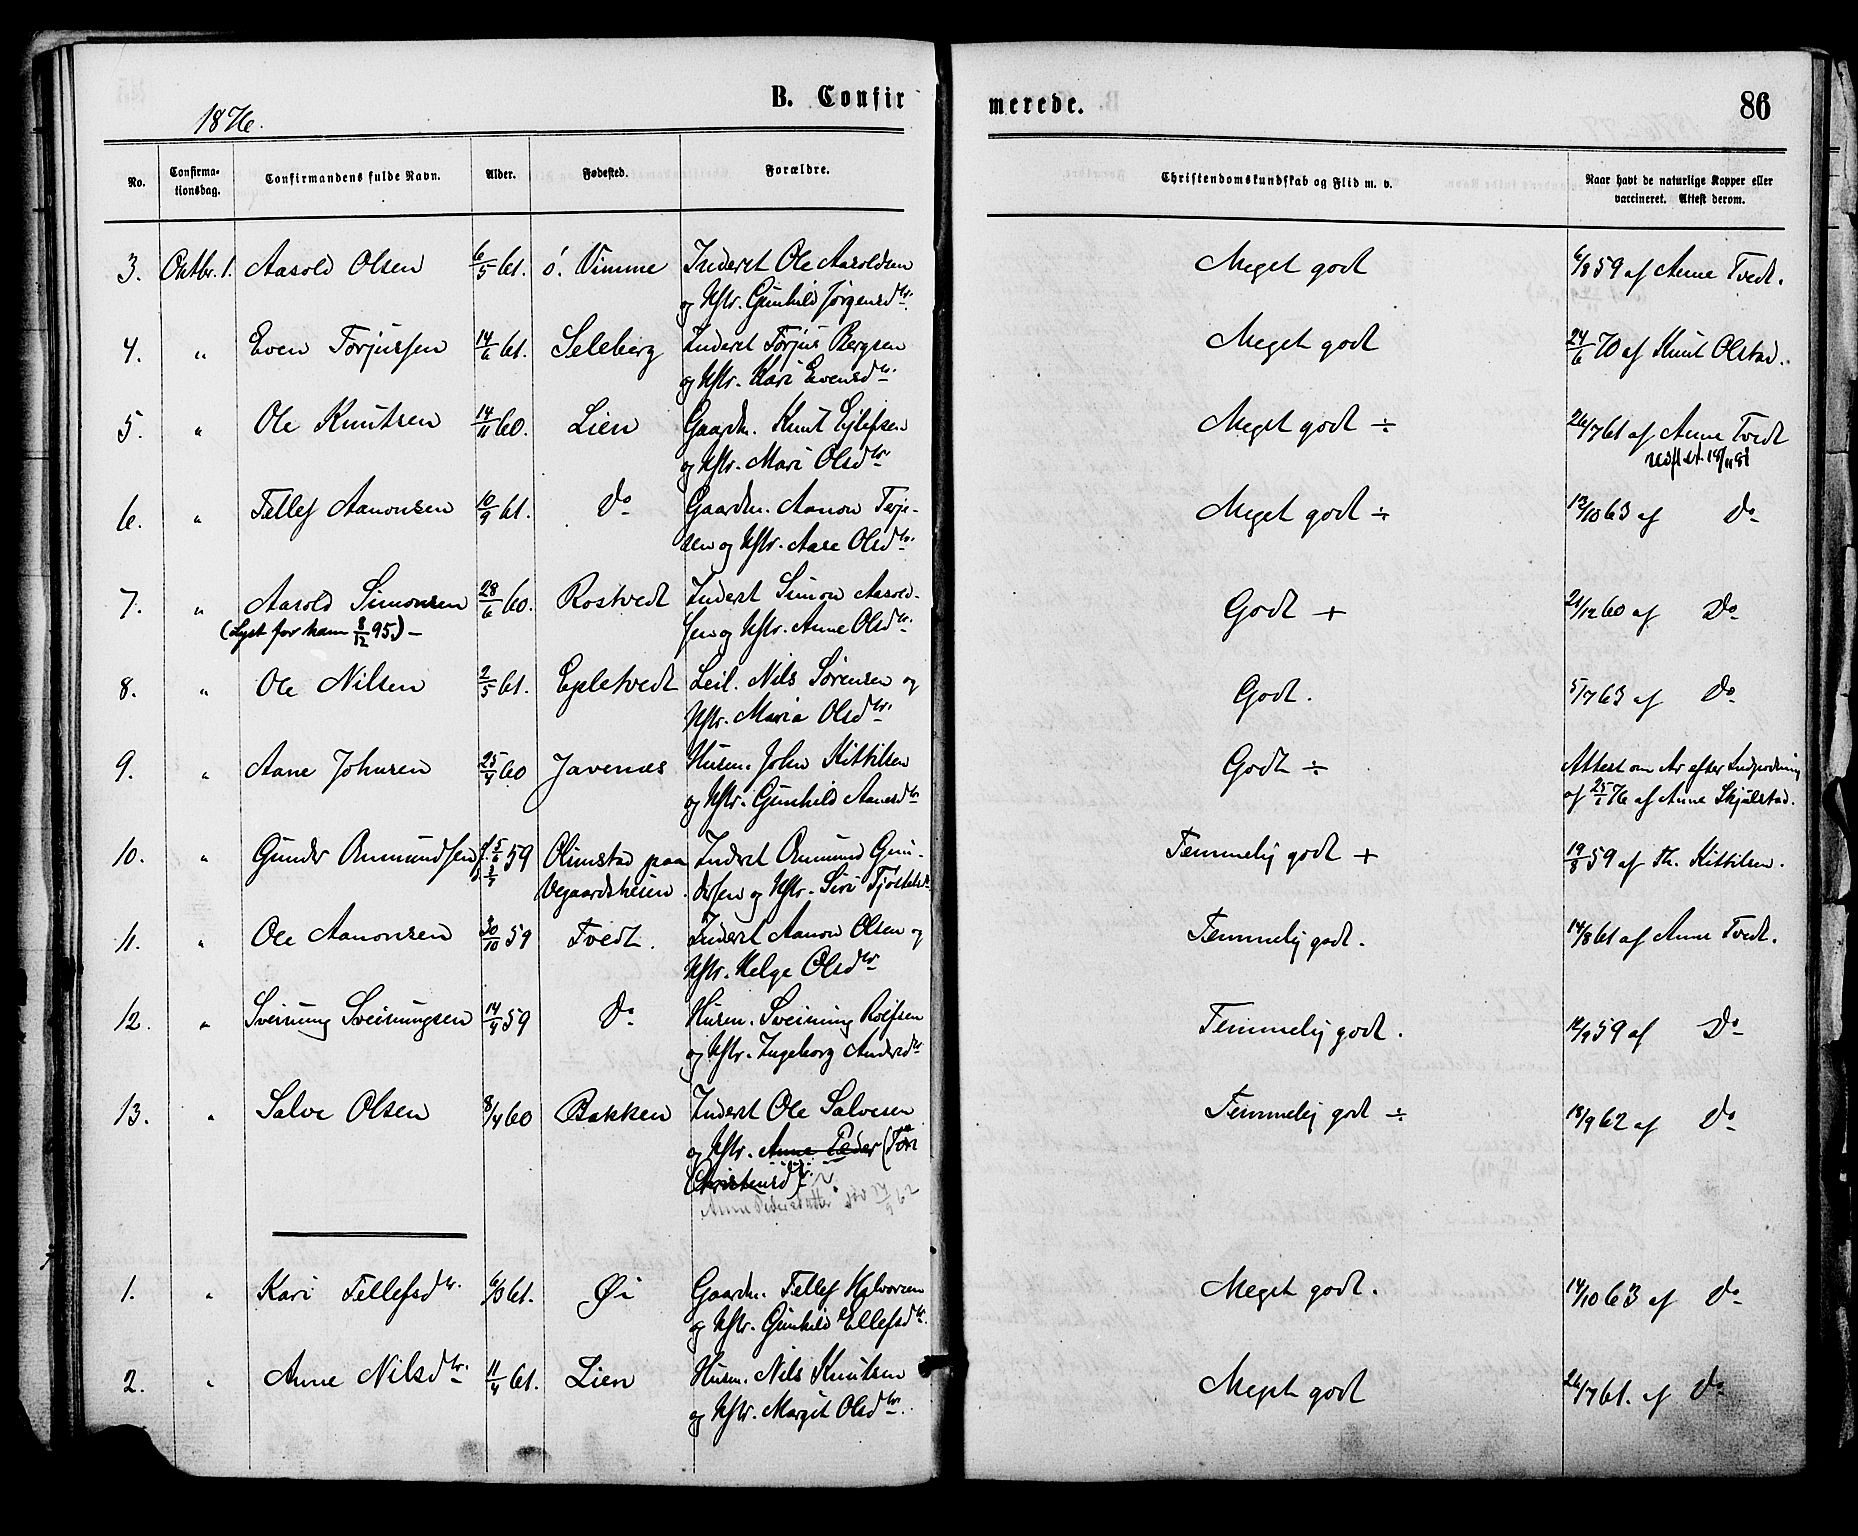 1876.
B. Confirmerede.
86
No. Confirmationsdag. Confirmandens fulde Navn. Alder. Fødested. Forældre. Christendomskundskab og Flid m. v. Naar havt de naturlige Kopper eller vaccineret. Attest derom.
3. Octbr. 1. Aasold Olsen 6/5 61. ó. Vimme Inderst Ole Aasoldsen Meget godt 6/8 59 af Anne Tvedt.
og Hstr. Gunhild Jørgensdtr.
4. " Even Torjussen 14/6 61. Seleberg Inderst Torjus Bergsen Meget godt 24/6 70 af Knut Olstad.
og Hstr. Kari Evensdtr.
5. " Ole Knutsen 14/11 60. Lien Gaardm. Knut Ejlefsen Meget godt ÷ 26/7 61 af Anne Tvedt
og Hstr. Mari Olsdtr. 18/11 81
6. " Tellef Aanonsen 10/9 61. Do Gaardm. Aanon Terje- Meget godt ÷ 13/10 63 af Do
sen og Hstr. Aase Olsdtr.
7. " Aasold Simonsen 28/6 60. Rostvedt Inderst Simon Aasold- Godt + 21/12 60 af Do
(Lyst for ham 8/12 95.) — sen og Hstr. Anne Olsdtr.
8. " Ole Nilsen 2/5 61. Epletvedt Leil. Nils Sørensen og Godt. 5/7 63 af Do
Hstr. Maria Olsdtr.
9. " Aane Johnsen 25/4 60 Javenæs Husm. John Kittilsen Godt ÷ Attest om Ar efter Indpodning
og Hstr. Gunhild Aanesdtr. af 25/1 76 af Anne Skjålstad.
10. " Gunder Anmundsen 59 Olimstad paa Inderst Anmund Gun- Temmelig godt + 19/8 59 af Th. Kittilsen.
Vegaardsheien. dersen og Hstr. Siri Tjostelsdtr.
11. " Ole Aanonsen 30/10 59 Tvedt. Inderst Aanon Olsen og Temmelig godt. 14/8 61 af Anne Tvedt.
Hstr. Helge Olsdtr.
12. " Sveinung Sveinungsen 14/4 59 Do Husm. Sveinung Rolfsen Temmelig godt. 12/9 59 af Do
og Hstr. Ingeborg Andersdtr.
13. " Salve Olsen 8/4 60 Bakken Inderst Ole Salvesen Temmelig godt ÷ 18/9 62 af Do
og Hstr. Anne Peder (Tøri
Christensdtr.)
Anne Pedersdatter
1. " Kari Tellefsdtr. 6/3 61. Øi Gaardm. Tellef Halvorsen Meget godt. 14/10 63 af Do
og Hstr. Gunhild Ellefsdtr.
2. " Anne Nilsdtr. 11/4 61. Lien Husm. Nils Knutsen Meget godt 26/7 61. af Do
og Hstr. Margit Olsdtr.